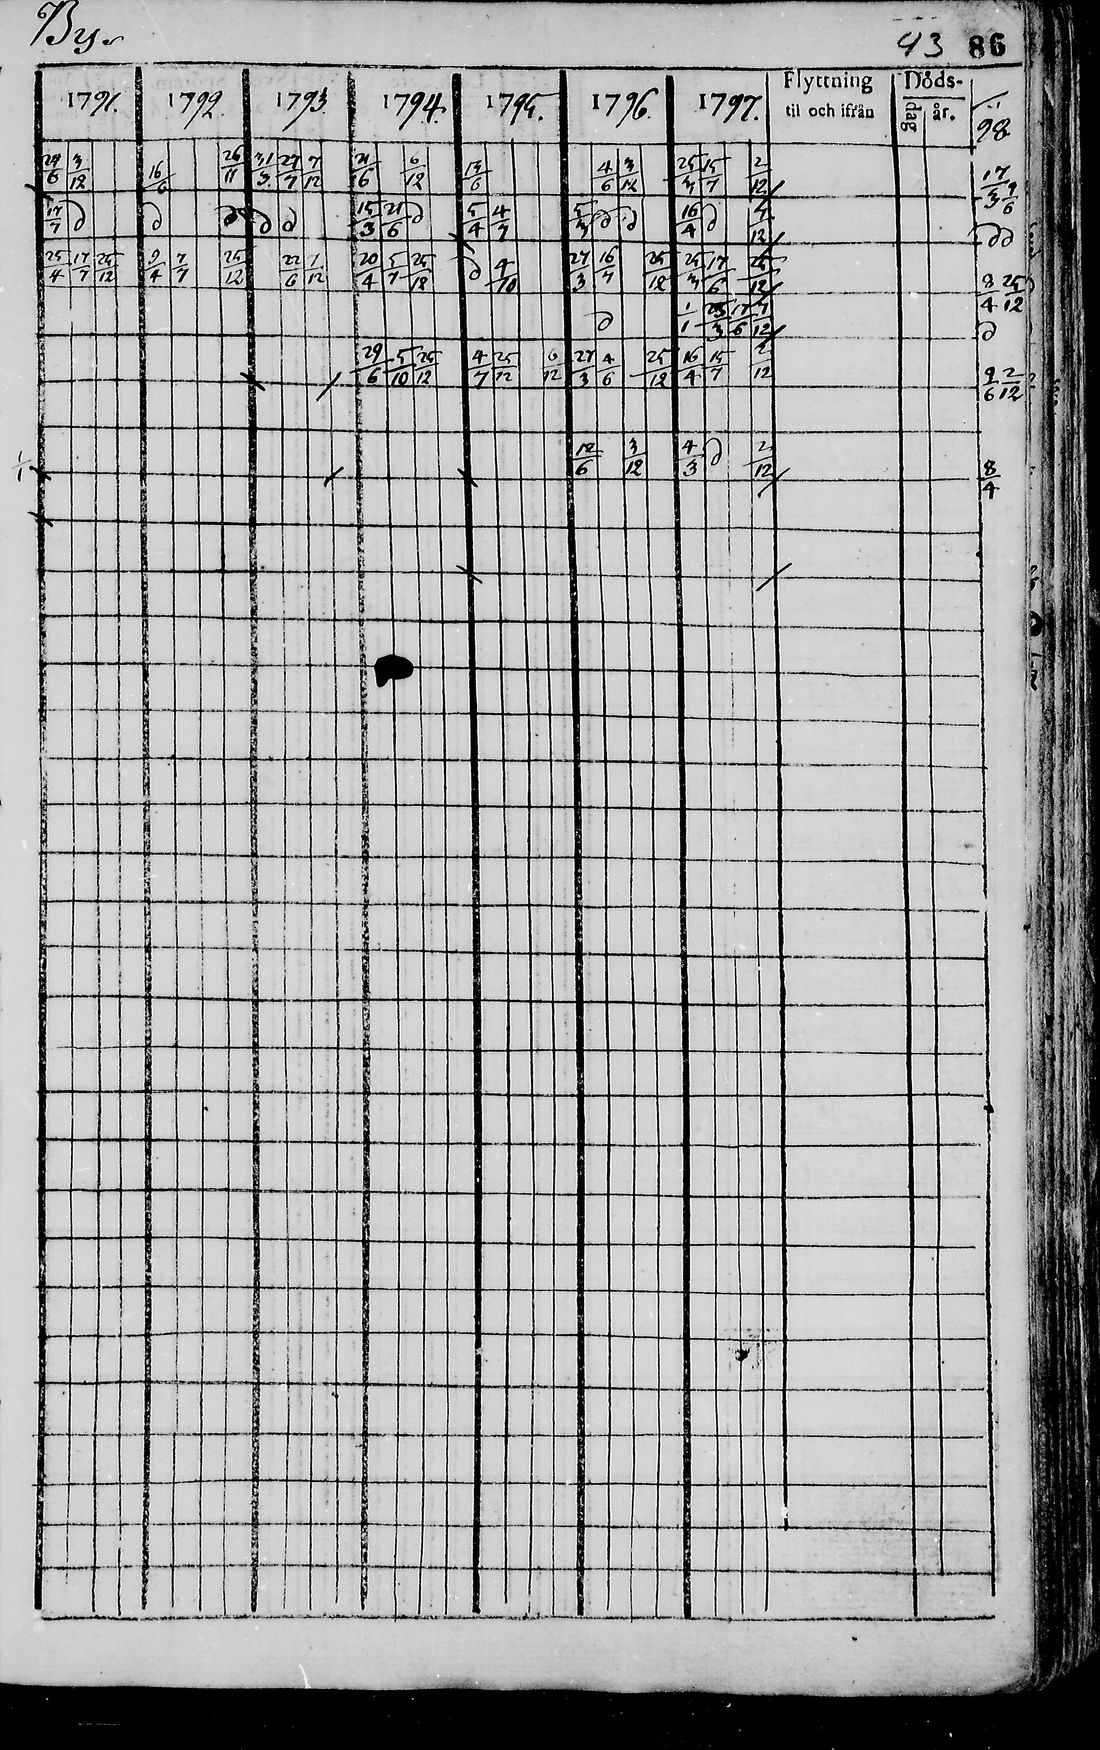 By.
43 86
1791. 1792. 1793. 1794. 1795. 1796. 1797. Flyttning til och ifrån Döds-dag år. 98
24/6 3/12 16/6 26/11 31/3 27/7 7/12 21/6 6/12 13/6 4/6 3/12 25/3 15/7 2/12 17/3 9/6
17/7 d d d d d 15/3 21/6 d 5/4 4/7 5/3 d d 16/4 d 4/12 d d
25/4 17/7 25/12 9/4 7/7 25/12 22/6 1/12 20/4 5/7 25/12 d 4/10 27/3 16/7 25/12 25/3 17/6 25/12 8/4 25/12
d 1/1 25/3 17/6 7/12 d
29/6 5/10 25/12 4/7 25/12 6/12 27/3 4/6 25/12 16/4 15/7 2/12 9/6 2/12
1/1 12/6 3/12 4/3 d 2/12 8/4